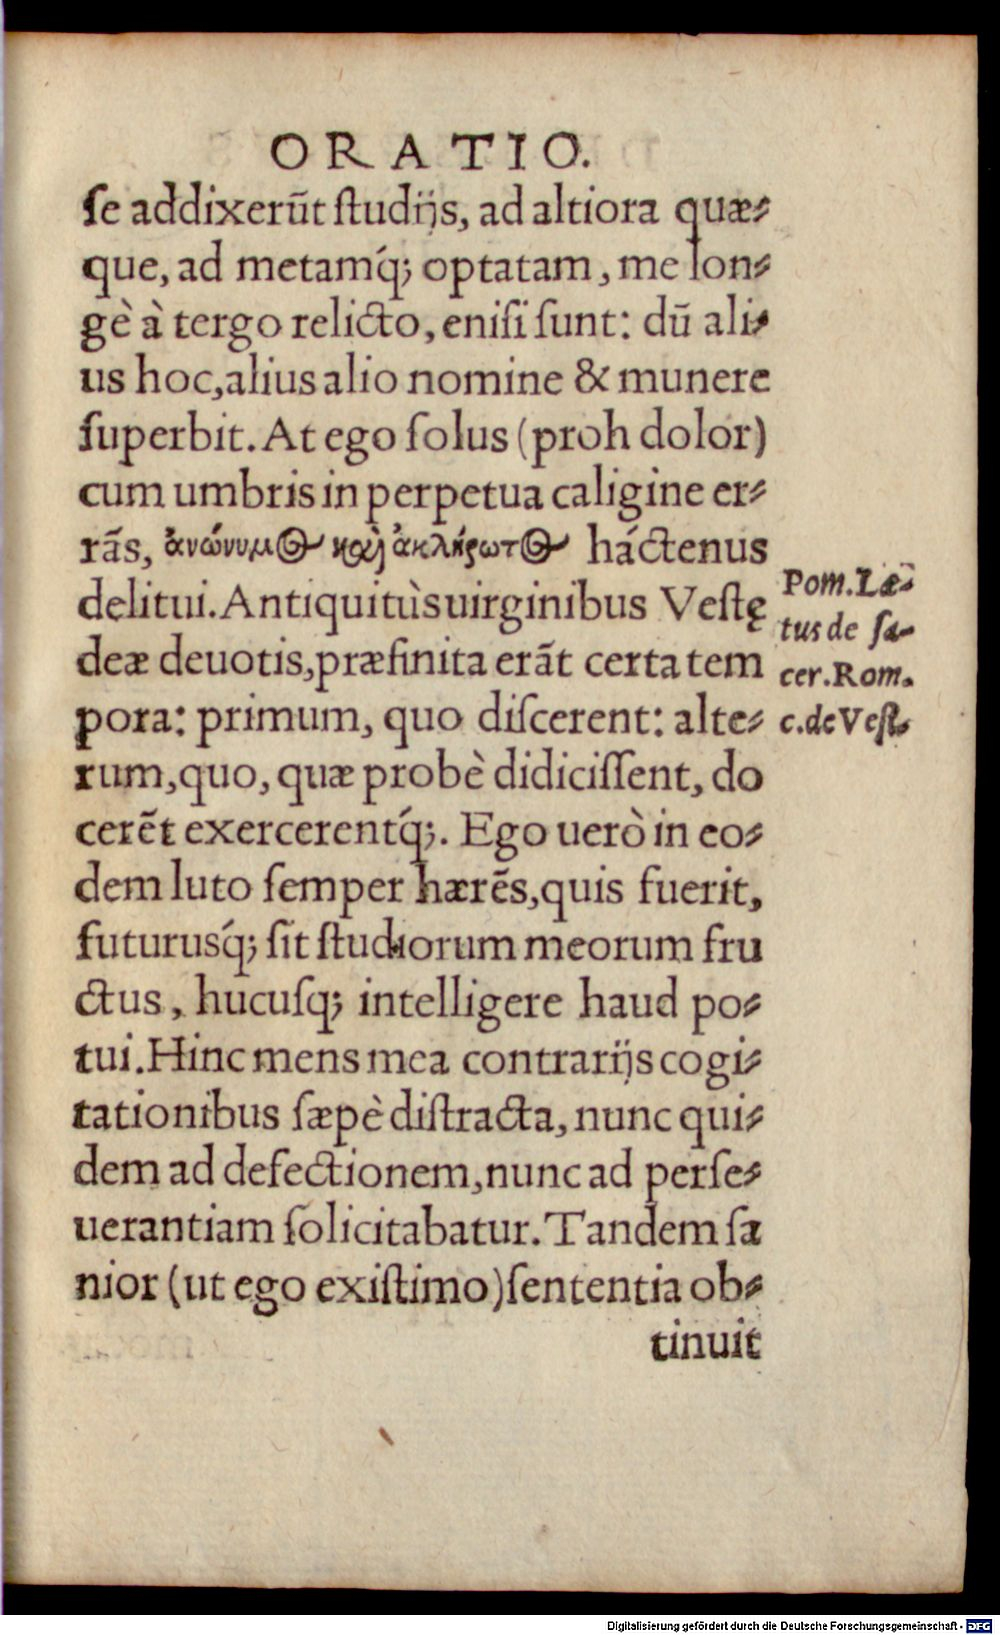 ORATIO.
ſe addixerūt ſtudijs, ad altiora quæ-
que, ad metamq́; optatam, me lon-
gè à tergo relicto, eniſi ſunt: dū ali-
us hoc, alius alio nomine & munere
ſuperbit. At ego ſolus (proh dolor)
cum umbris in perpetua caligine er-
rās, ἀνώνυμος καὶ ἀκλήρωτος hactenus
delitui. Antiquitùs uirginibus Veſtę
deæ deuotis, præfinita erāt certa tem
pora: primum, quo diſcerent: alte-
rum, quo, quæ probè didiciſſent, do
cerēt exercerentq́;. Ego uerò in eo-
dem luto ſemper hærēs, quis fuerit,
futurusq́; ſit ſtudiorum meorum fru
ctus, hucuſq; intelligere haud po-
tui. Hinc mens mea contrarijs cogi-
tationibus ſæpè diſtracta, nunc qui-
dem ad defectionem, nunc ad perſe-
uerantiam ſolicitabatur. Tandem ſa
nior (ut ego exiſtimo) ſententia ob-
tinuit
Pom. Læ-
tus de ſa-
cer. Rom.
c. de Veſt.
Digitalisierung gefördert durch die Deutsche Forschungsgemeinschaft - DFG